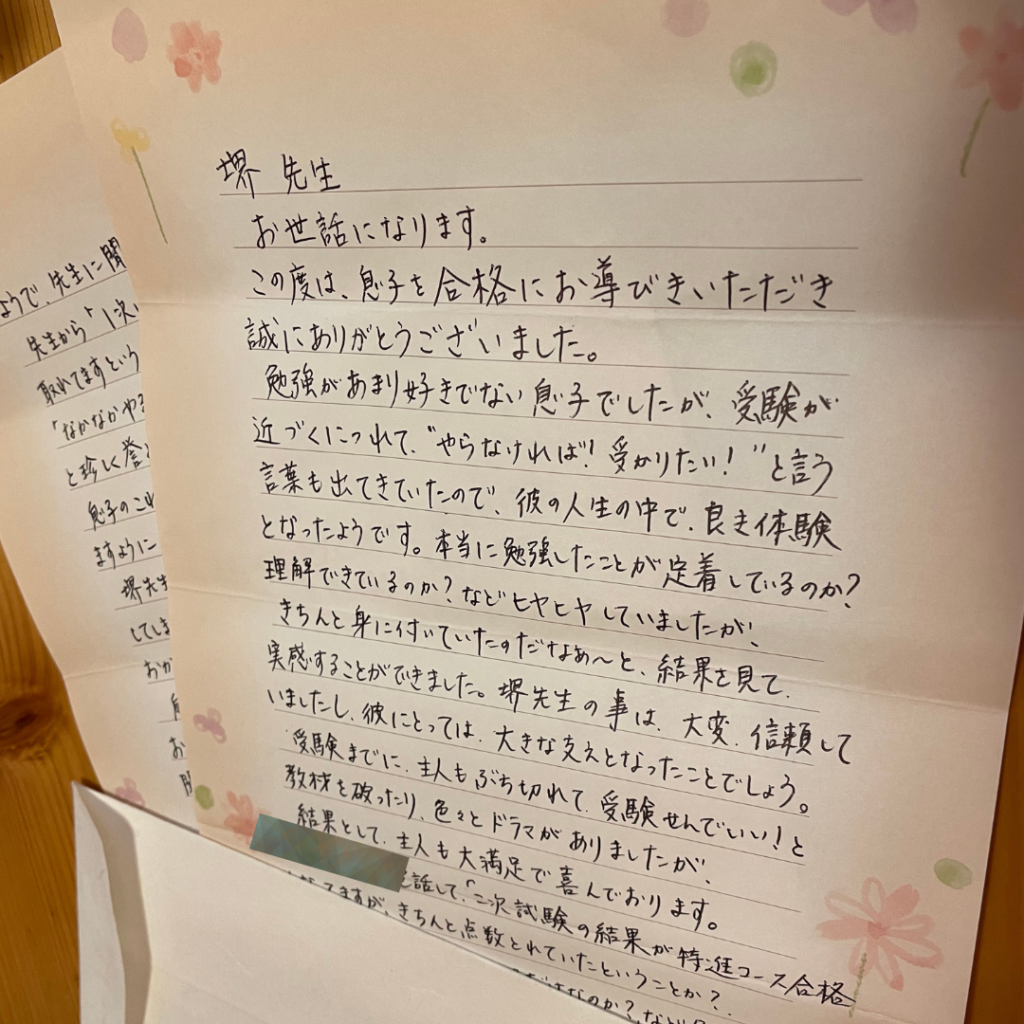 堺 先生
お世話になります。
この度は、息子を合格にお導びきいただき
誠にありがとうございました。
勉強があまり好きでない息子でしたが、受験が
近づくにつれて、“やらなければ！受かりたい！”と言う
言葉も出てきていたので、彼の人生の中で、良き体験
となったようです。本当に勉強したことが定着しているのか？
理解できているのか？などヒヤヒヤしていましたが、
きちんと身に付いていたのだなぁ〜と、結果を見て、
実感することができました。堺先生の事は、大変、信頼して
いましたし、彼にとっては、大きな支えとなったことでしょう。
受験までに、主人もぶち切れて、受験せんでいい！と
教材を破ったり、色々とドラマがありましたが、
結果として、主人も大満足で喜んでおります。
話して、「二次試験の結果が特進コース合格
てますが、きちんと点数とれていたということか？
なのか？など
ようで、先生に聞
先生から「1次
取れてますという
「なかなかや
と珍しく誉
息子のこれ
ますように
堺先生
してしま
おか
お